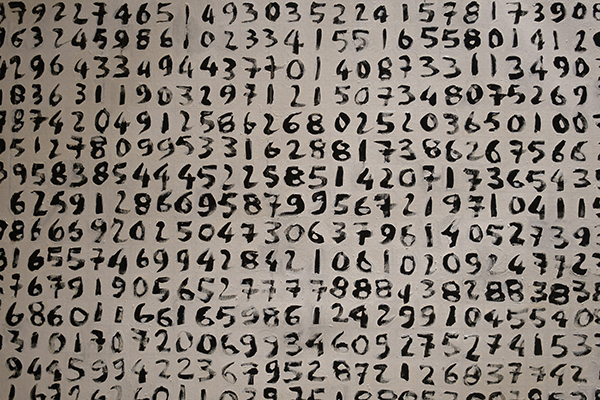 3792274651493035224157817390
9632459861023341551655801412
4296433494437701408733113490
183631190329712150734807 5269
7874204912586268025203650100
951278099533162881738626 7566
395838544452258514207173 6543
6259128669587995672197104 11
786692025047306379614052739
8165574699428421061020924772
767919056527777888438288383
6860116616598612429910455 40
310170720069934609275274153
944599422367952872126837742